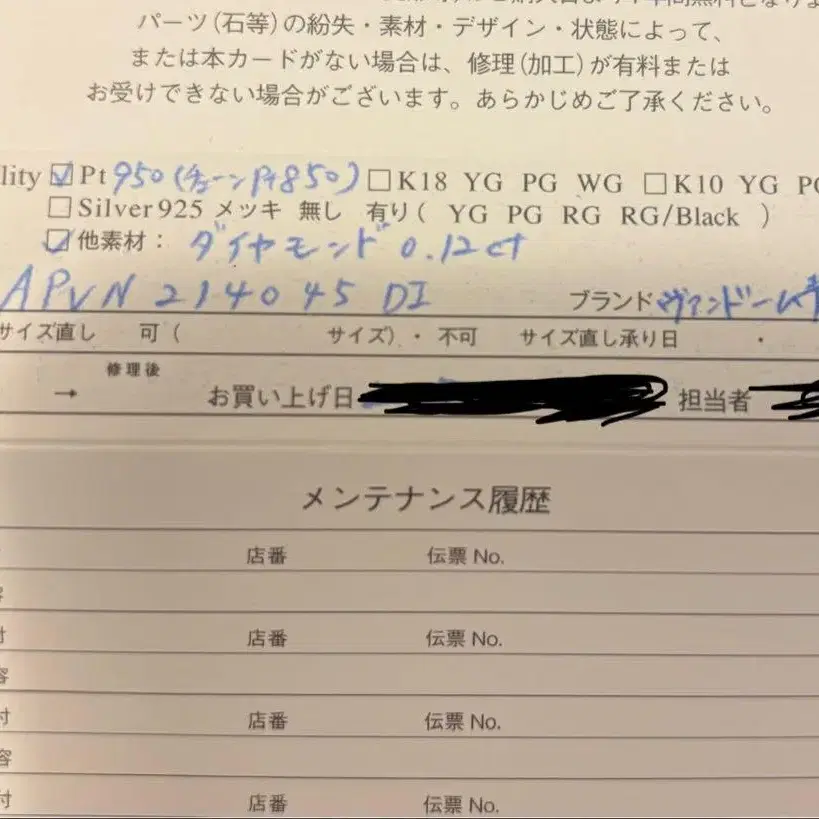 パーツ（石等）の紛失・素材・デザイン・状態によって、
または本カードがない場合は、修理（加工）が有料または
お受けできない場合がございます。あらかじめご了承ください。
lity ☑Pt 950 (チェーンPt850) □K18 YG PG WG □K10 YG PG
□Silver925 メッキ 無し 有り（ YG PG RG RG/Black ）
☑他素材： ダイヤモンド 0.12ct
APVN 214045 DI ブランド ヴァンドーム青
サイズ直し 可（ サイズ）・不可 サイズ直し承り日 ・
修理後
→ お買い上げ日 担当者
メンテナンス履歴
店番 伝票 No.
容
付 店番 伝票 No.
容
付 店番 伝票 No.
容
付 店番 伝票 No.